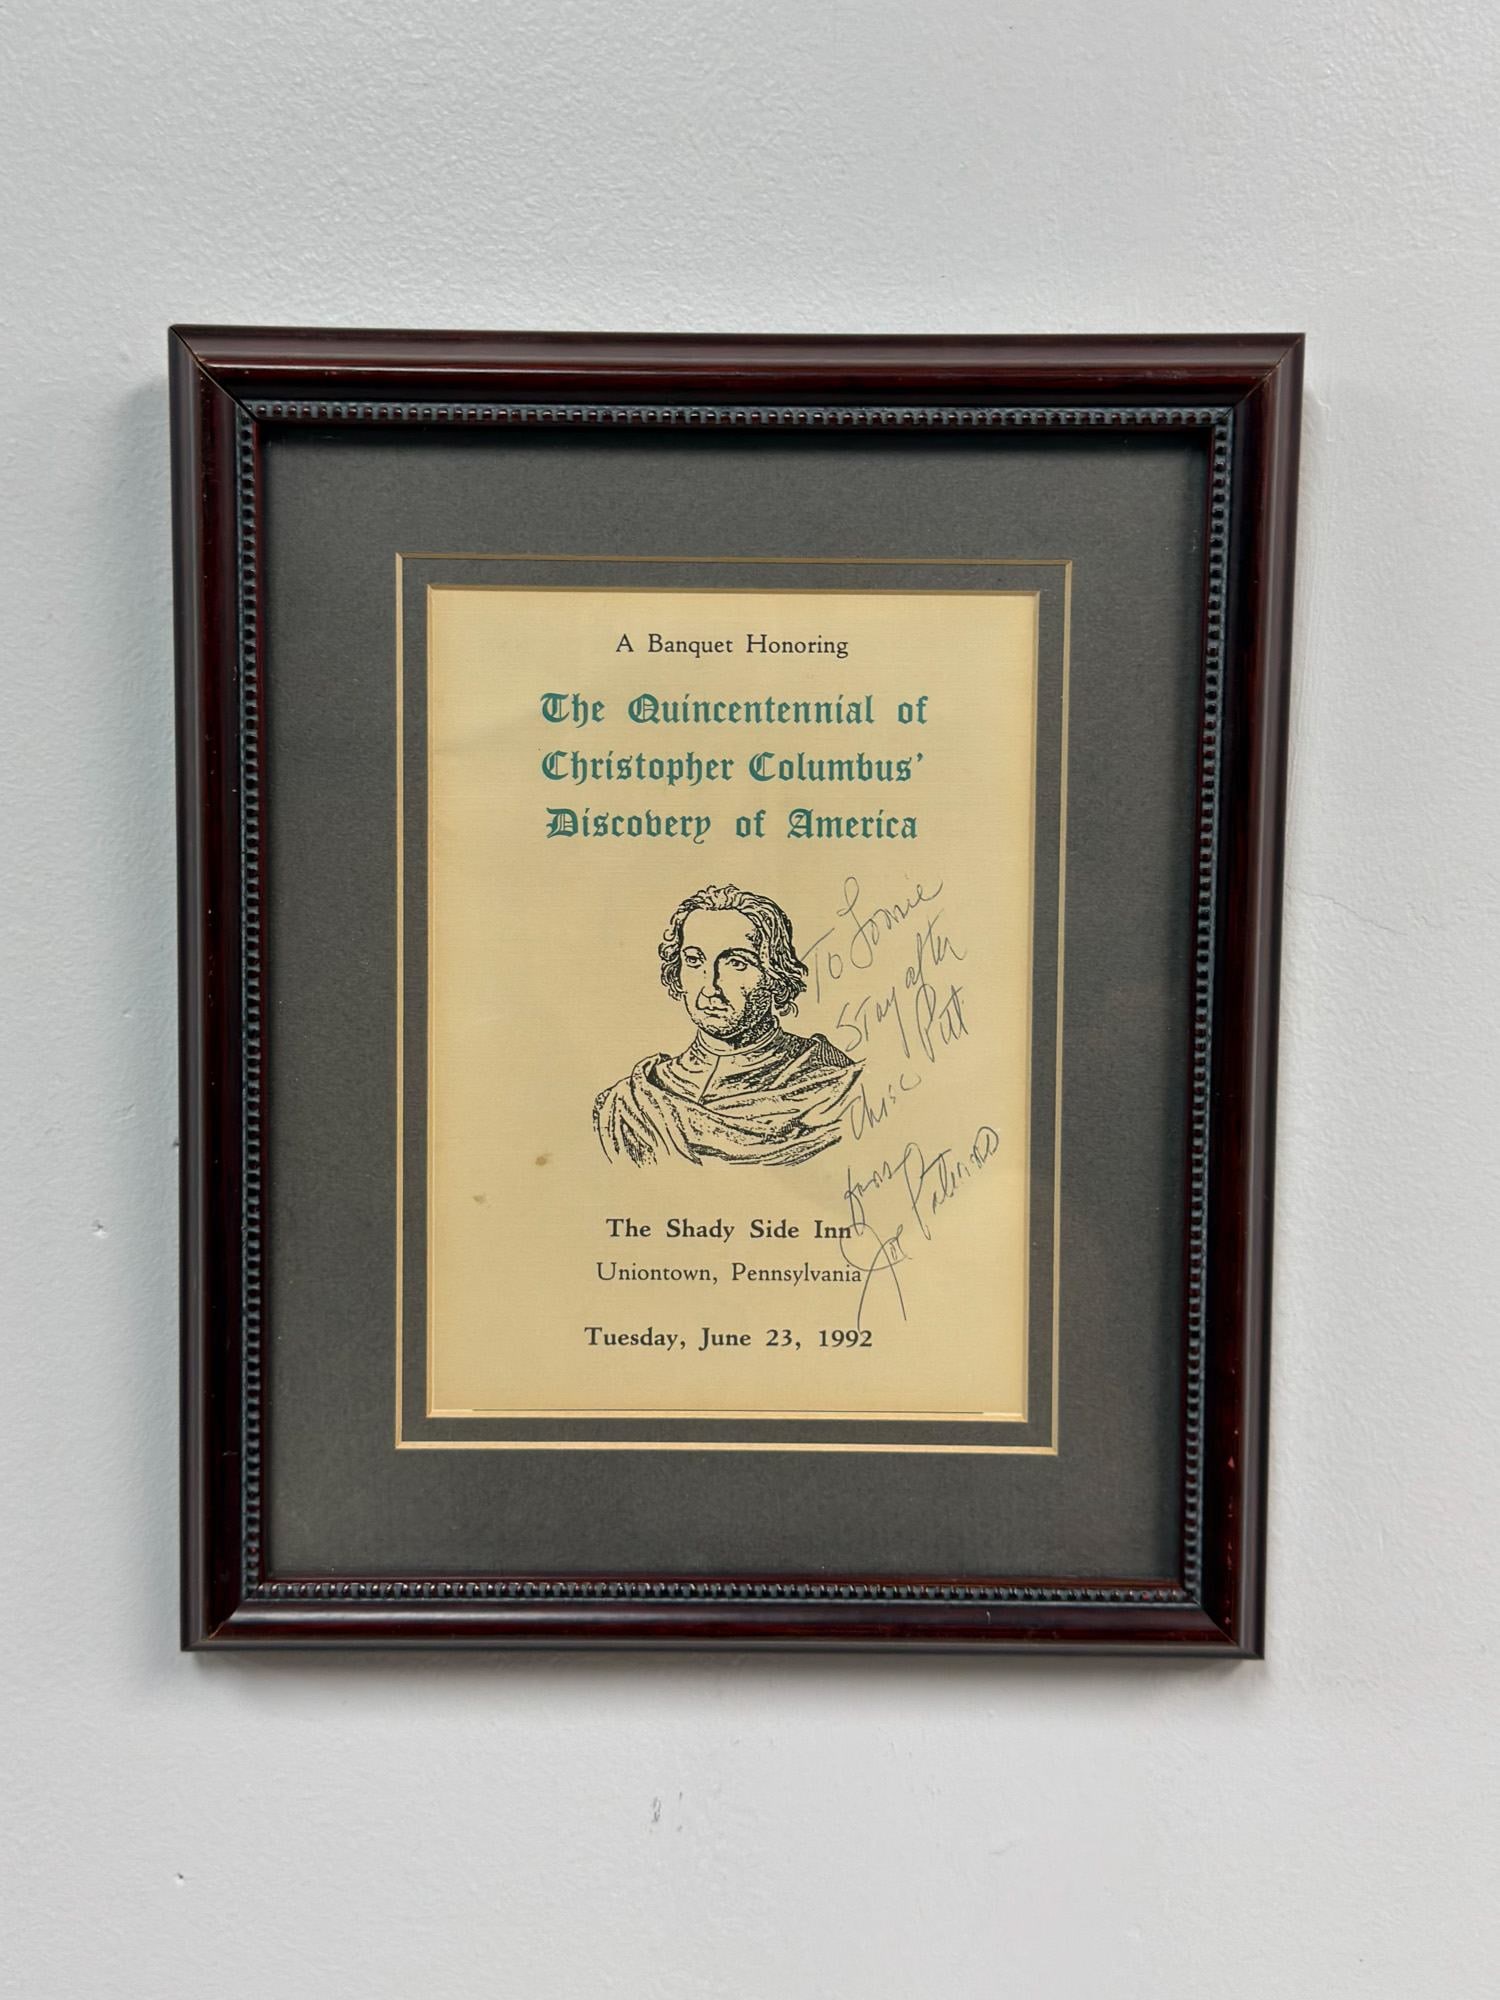 A Banquet Honoring
The Quincentennial of
Christopher Columbus'
Discovery of America
To Lonnie
Stay after
Pitt
The Shady Side Inn
Uniontown, Pennsylvania
Joe Paterno
Tuesday, June 23, 1992